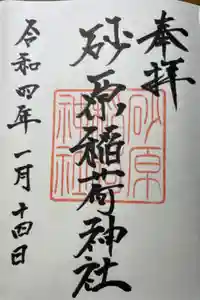 奉拝
砂原稲荷神社
砂原
神社
令和四年一月十四日